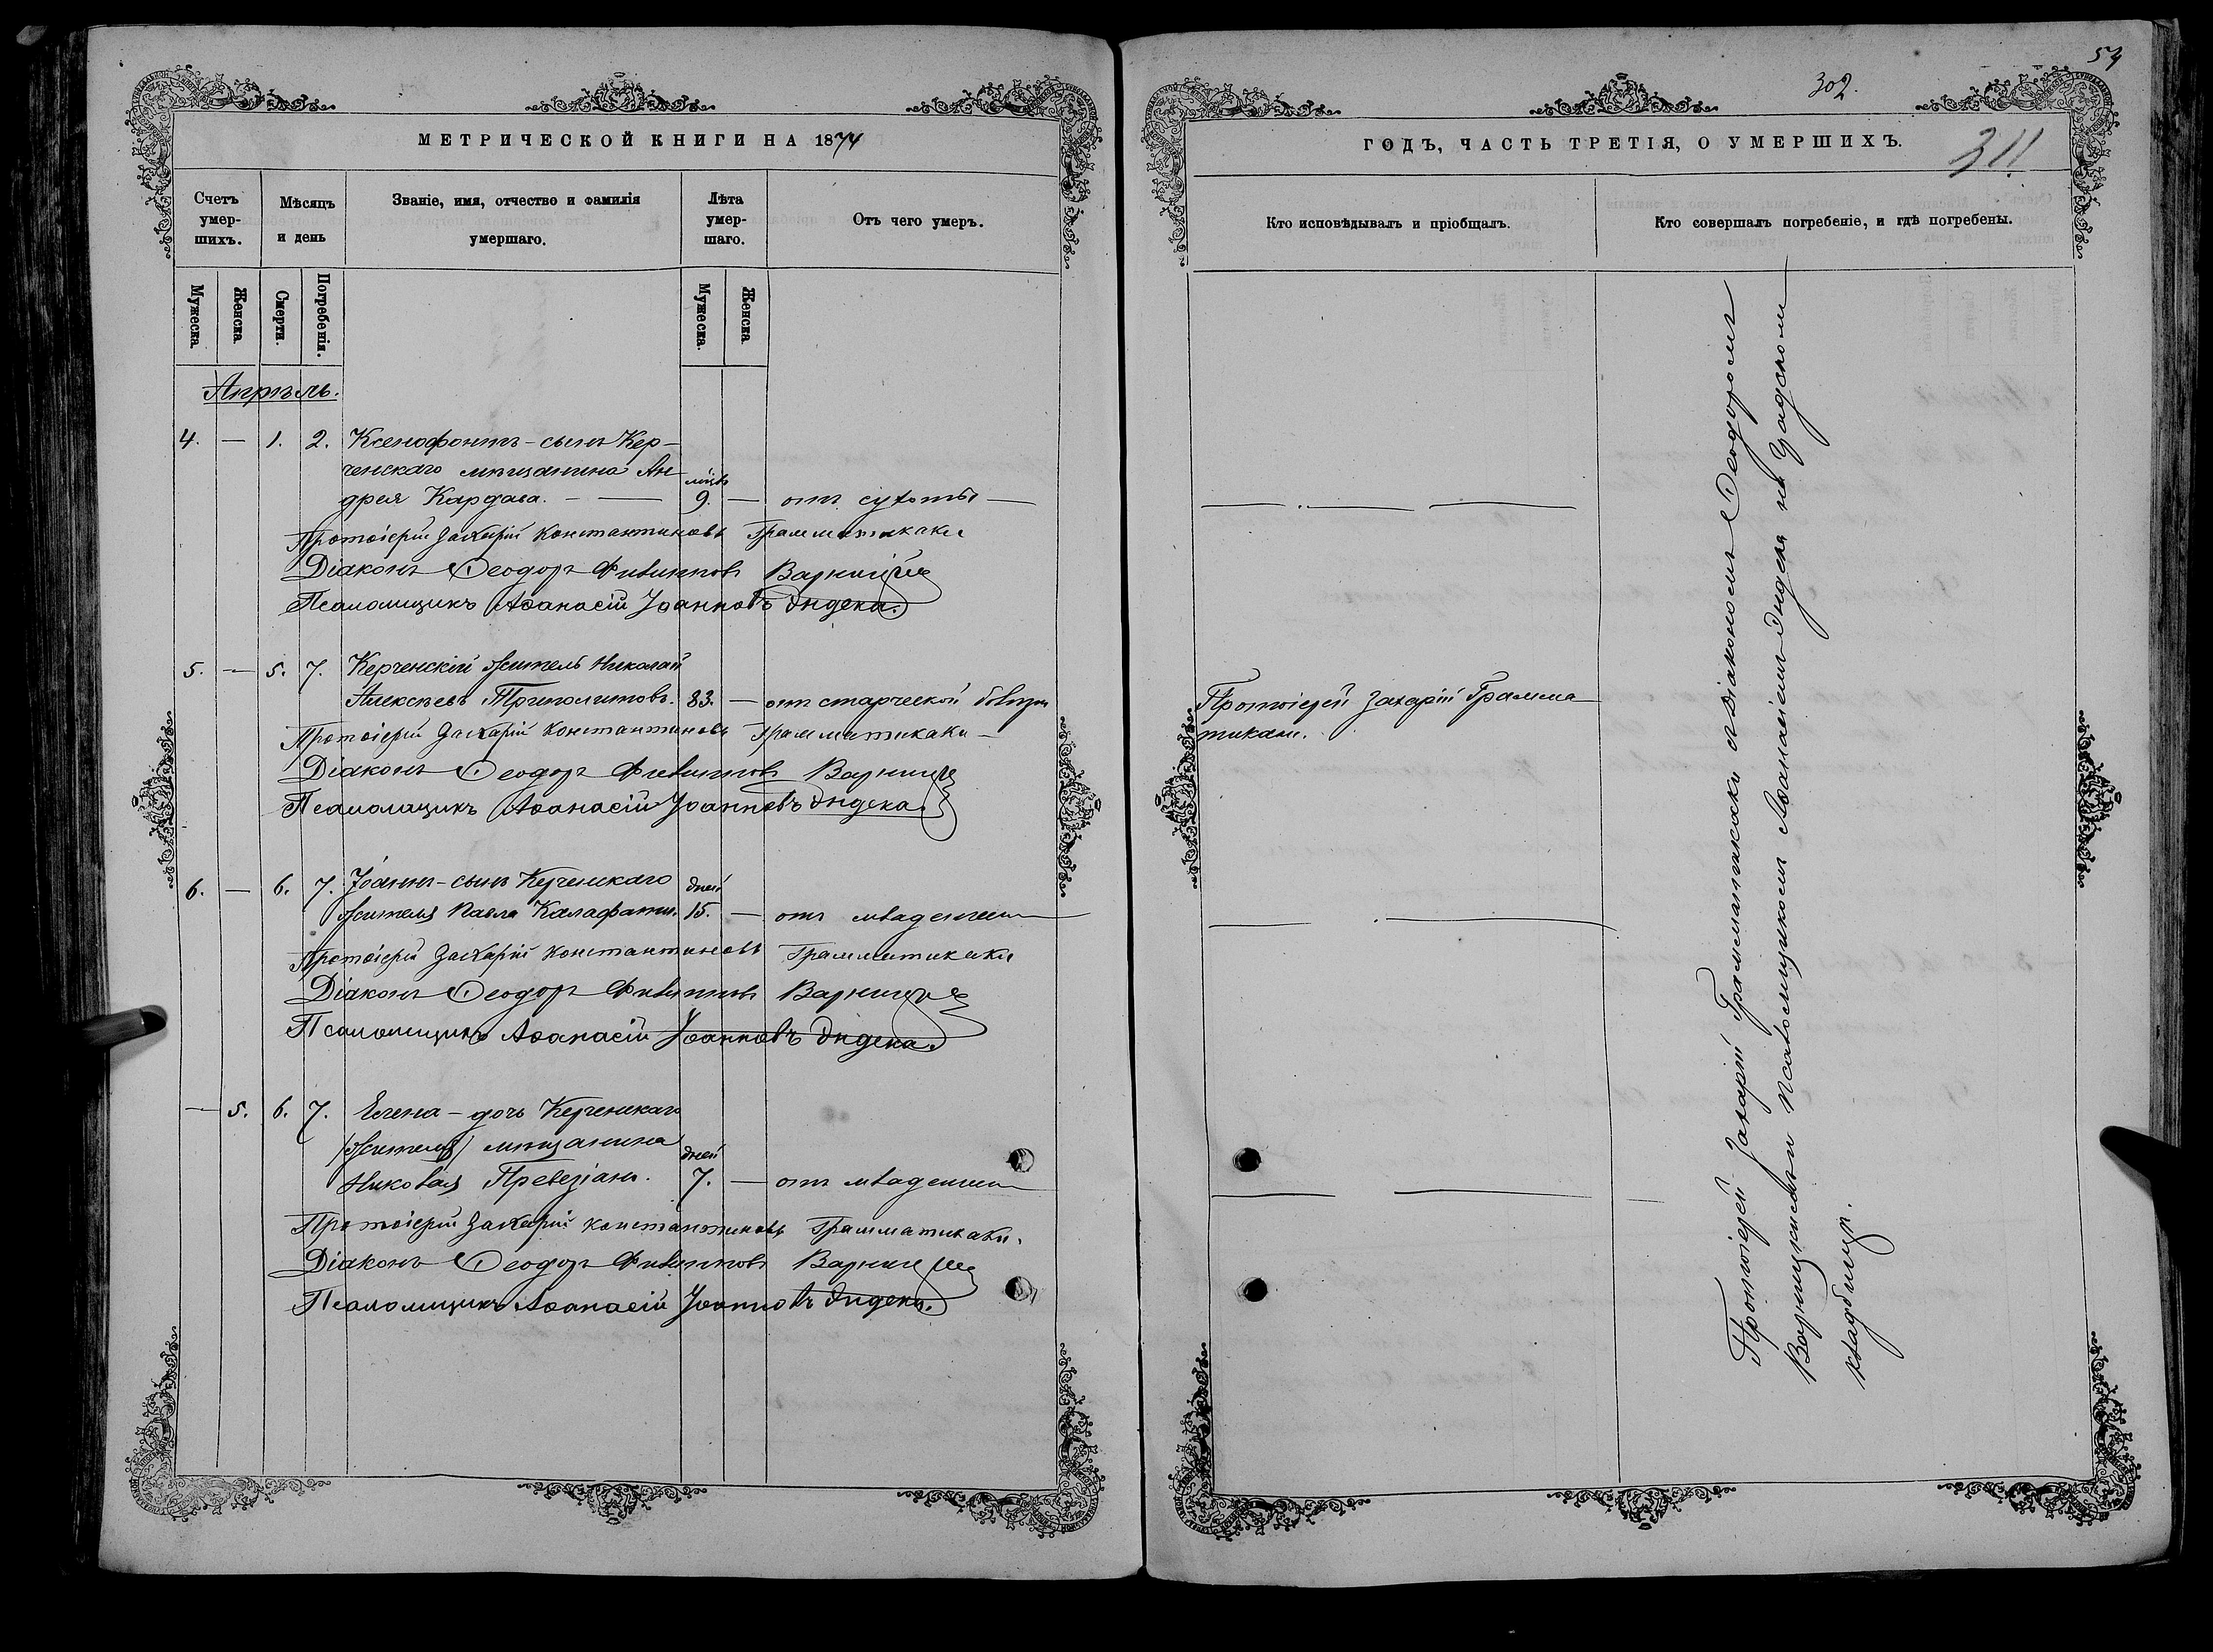 МЕТРИЧЕСКОЙ КНИГИ НА 1874
Счетъ умер-шихъ.
Мѣсяцъ и день
Званіе, имя, отчество и фамилія умершаго.
Лѣта умер-шаго.
Отъ чего умеръ.
Мужеска.
Женска
Смерти.
Погребенія.
Мужеска.
Женска
Апрѣль.
4. — 1. 2. Ксенофонтъ – сынъ Кер-
ченскаго мѣщанина Ан мѣс.
дрея Кардава. — 9. — отъ сухоты —
Протоіерей Захарій Константиновъ Грамматикаки
Діаконъ Ѳеодоръ Филипповъ Варницкій
Псаломщикъ Аѳанасій Іоанновъ Индека.
5. — 5. 7. Керченскій житель Николай
Алексѣевъ Триполитовъ. 83. — отъ старческой болѣзни
Протоіерей Захарій Константиновъ Грамматикаки —
Діаконъ Ѳеодоръ Филипповъ Варницкій
Псаломщикъ Аѳанасій Іоанновъ Индека.
6. — 6. 7. Іоаннъ – сынъ Керченскаго дней
жителя Павла Калафати. 15. — отъ младенчест
Протоіерей Захарій Константиновъ Грамматикаки
Діаконъ Ѳеодоръ Филипповъ Варницкій
Псаломщикъ Аѳанасій Іоанновъ Индека.
— 5. 6. 7. Елена – дочь Керченскаго
(жителя) мѣщанина дней
Николая Превезіано. 7. — отъ младенчест
Протоіерей Захарій Константиновъ Грамматикаки.
Діаконъ Ѳеодоръ Филипповъ Варницкій
Псаломщикъ Аѳанасій Іоанновъ Индека.
54
302.
311
ГОДЪ, ЧАСТЬ ТРЕТІЯ, О УМЕРШИХЪ.
Кто исповѣдывалъ и пріобщалъ.
Кто совершалъ погребеніе, и гдѣ погребены.
Протоіерей Захарій Грамма
тикаки.
Протоіерей Захарій Грамматикаки съ діакономъ Ѳеодоромъ
Варницкимъ и псаломщикомъ Аѳанасіемъ Индека на Градском
кладбищѣ.